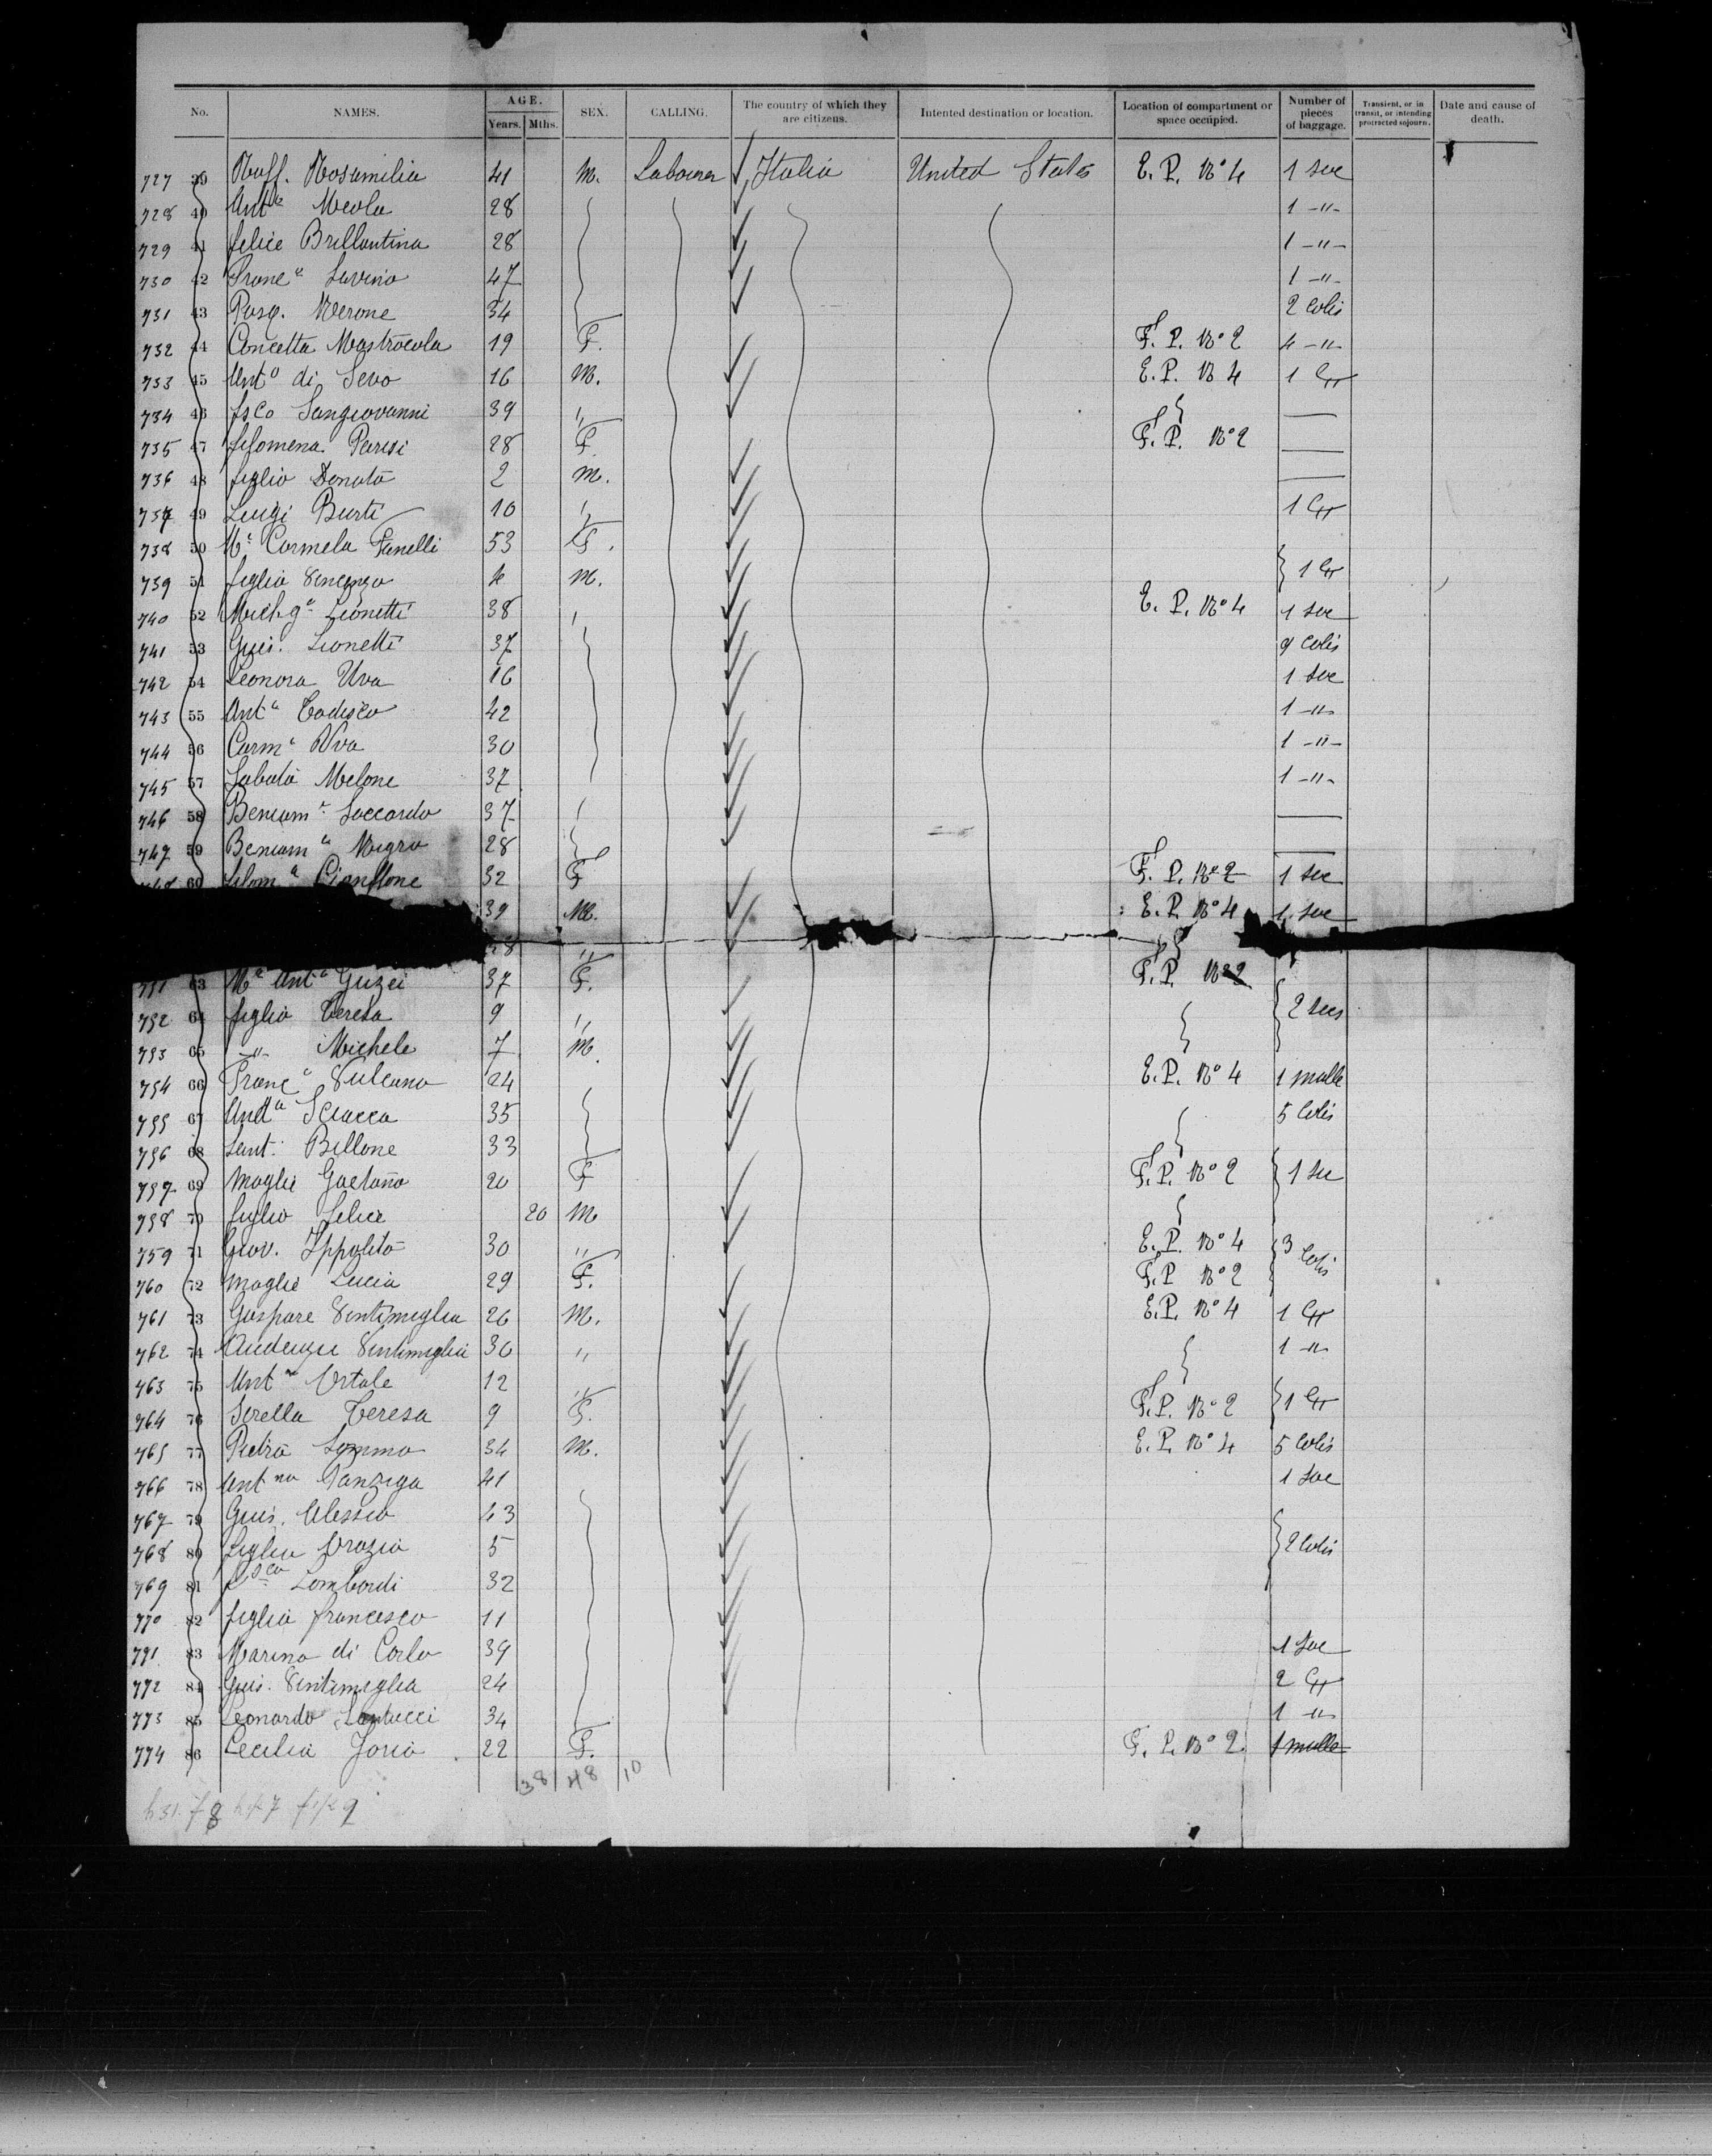 No. NAMES. AGE. Years. Mths. SEX. CALLING. The country of which they are citizens. Intented destination or location. Location of compartment or space occupied. Number of pieces of baggage. Transient, or in transit, or intending protracted sojourn. Date and cause of death.
727 39 Raff. Rosamilia 41 M. Labourer Italia United States E. P. No 4 1 sac
728 40 Anto Meola 28 1 -"-
729 41 felice Brillantina 28 1 -"-
730 42 Franca Savino 47 1 -"-
731 43 Pasq. Nerone 34 2 Colis
732 44 Concetta Mastrocola 19 F. F. P. No 2 4 -"-
733 45 Anto di Sevo 16 M. E. P. N 4 1
734 46 fsco Sangiovanni 39 "
735 47 filomena Parisi 28 F. F. P. No 2
736 48 figlio Donato 2 M.
737 49 Luigi Burti 10 " 1
738 50 Ma Carmela Fanelli 53 F.
739 51 figlio Vincenzo 4 M. 1
740 52 Michge Lionetti 38 " E. P. No 4 1 sac
741 53 Guis. Lionetti 37 9 Colis
742 54 Leonora Uva 16 1 sac
743 55 Anta Todisco 42 1 -"-
744 56 Carma Uva 30 1 -"-
745 57 Sabato Melone 37 1 -"-
746 58 Beniam Saccardo 37
747 59 Beniama Nigro 28
60 filoma 32 F F. P. No 2 1 sac
39 M. E. P. No 4 1 sac
"
63 Ma Anta Guzei 37 F. F. P. No 2
752 64 figlia Teresa 9 " 2 sacs
753 65 -"- Michele 7 M.
754 66 Franca Vulcano 24 E. P. No 4 1 malle
755 67 Anda Sciacca 35 5 Colis
756 68 Sant. Billone 33
757 69 moglie Gaetana 20 F F. P. No 2 1 sac
758 70 figlio felice 20 M
759 71 Giov. Ippolito 30 " E. P. No 4 3 Colis
760 72 moglie Lucia 29 F. F. P No 2
761 73 Gaspare Vintimiglia 26 M. E. P. No 4 1
762 74 Vintimiglia 30 " 1 -"-
763 75 Ant Ortale 12 "
764 76 Sorella Teresa 9 F. F. P. No 2 1
765 77 Pietro Lomma 34 M. E. P. No 4 5 Colis
766 78 Antno Panziga 41 1 sac
767 79 Guis. Alessio 43
768 80 figlia Orazia 5 2 Colis
769 81 fsco Lombardi 32
770 82 figlio francesco 11
771 83 Marino di Carlo 39 1 sac
772 84 Guis. Vintimiglia 24 2
773 85 Leonardo Santucci 34 1 -"-
774 86 Cecilia Joria 22 F. F. P. No 2 1 malle
38 48 10